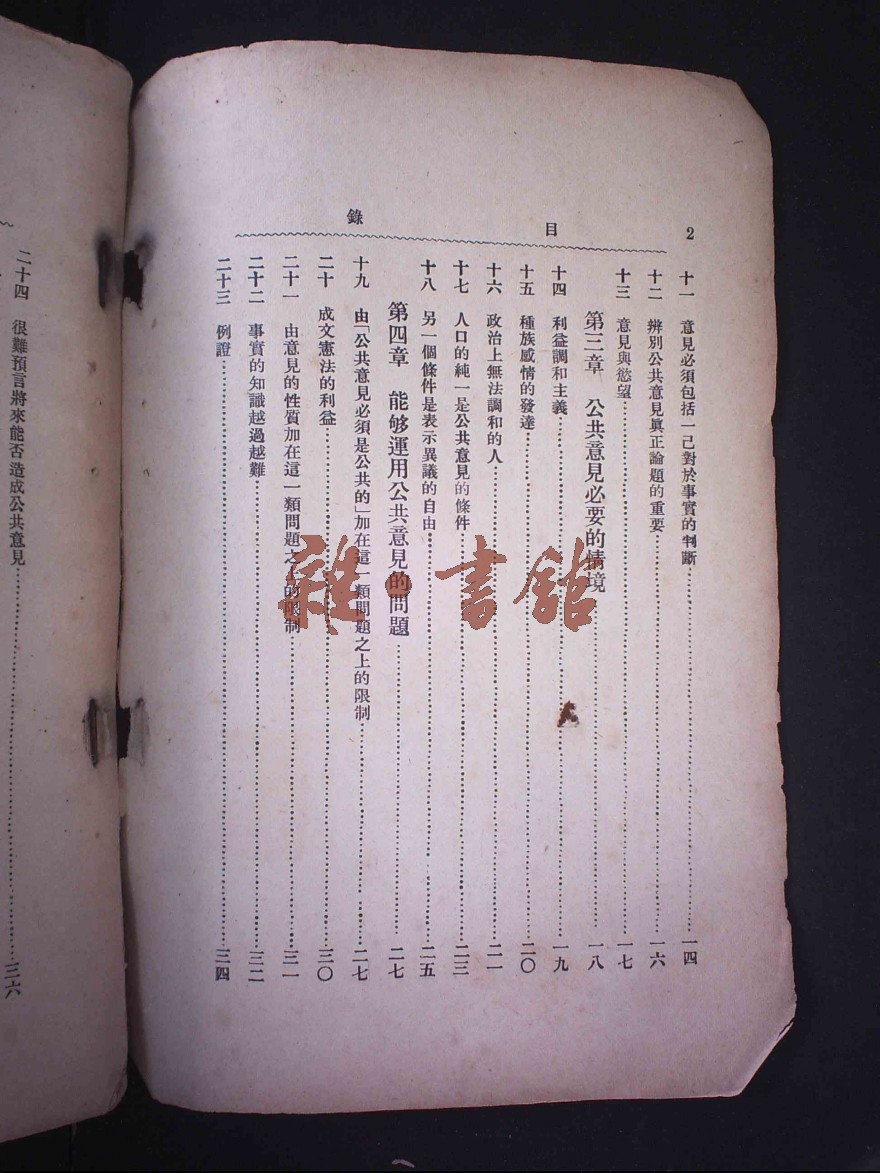 2
目錄
十一 意見必須包括一己對於事實的判斷……一四
十二 辨別公共意見眞正論題的重要……一六
十三 意見與慾望……一七
第三章 公共意見必要的情境……一八
十四 利益調和主義……一九
十五 種族感情的發達……二〇
十六 政治上無法調和的人……二一
十七 人口的純一是公共意見的條件……二三
十八 另一個條件是表示異議的自由……二五
第四章 能够運用公共意見的問題……二七
十九 由「公共意見必須是公共的」加在這一類問題之上的限制……二七
二十 成文憲法的利益……三〇
二十一 由意見的性質加在這一類問題之上的限制……三一
二十二 事實的知識越過越難……三二
二十三 例證……三四
二十四 很難預言將來能否造成公共意見……三六
雜·書館